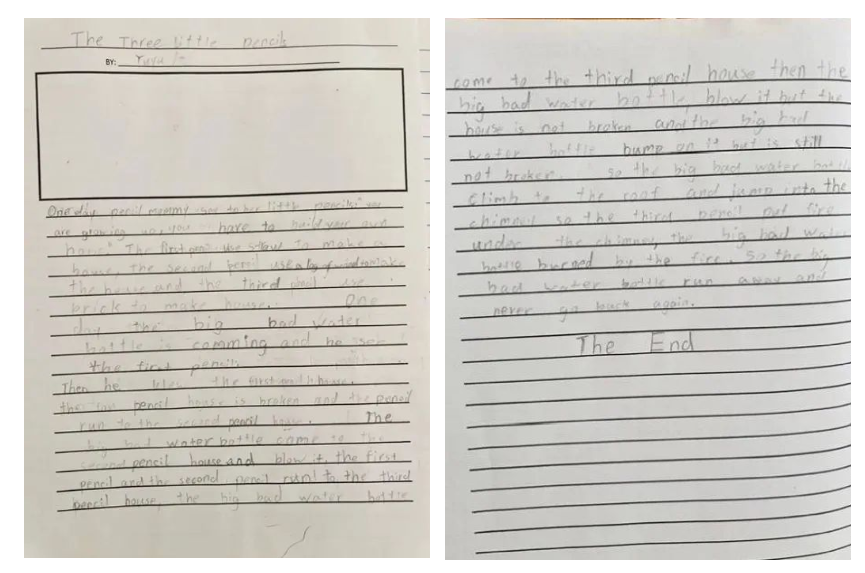 The Three little pencils
BY: Yuyu
One day pencil mommy say to her little pencils "you
are growing up, you have to build your own
house." The first pencil use straw to make a
house, the second pencil use a log of wood make
the house and the third pencil use
brick to make house. One
day the big bad water
bottle is comming and he see
the first pencil.
Then he blew the first pencil house.
the pencil house is broken and the pencil
run to the second pencil house. The
big bad water bottle come to the
second pencil house and blow it, the first
pencil and the second pencil run! to the third
pencil house, the big bad water bottle
come to the third pencil house then the
big bad water bottle, blow it but the
house is not broken and the big bad
water bottle bump on it but is still
not broken. So the big bad water bottle
climb to the roof and jump into the
chimney so the third pencil put fire
under the chimney, the big bad water
bottle burned by the fire. So the big
bad water bottle run away and
never go back again.
The End